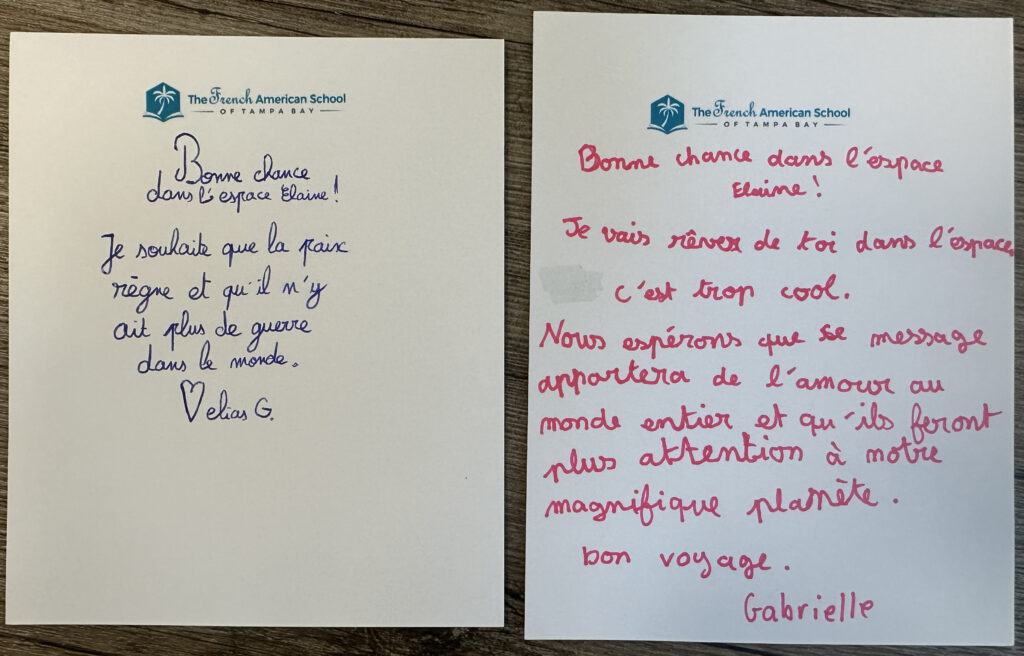 The French American School
OF TAMPA BAY
Bonne chance
dans l'espace Elaine!
Je souhaite que la paix
règne et qu'il n'y
ait plus de guerre
dans le monde.
elias G.
The French American School
OF TAMPA BAY
Bonne chance dans l'éspace
Elaine!
Je vais rêver de toi dans l'éspace,
c'est trop cool.
Nous espérons que se message
apportera de l'amour au
monde entier et qu'ils feront
plus attention à notre
magnifique planète.
bon voyage.
Gabrielle